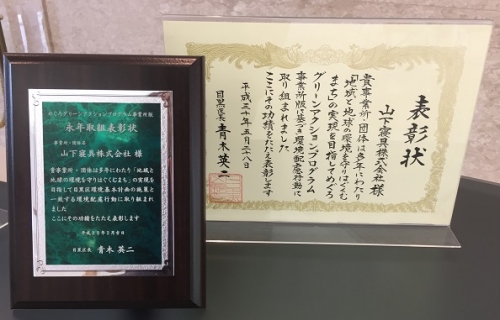 めぐろグリーンアクションプログラム事業所版
永年取組表彰状
事業所・団体名
山下寝具株式会社 様
貴事業所・団体は多年にわたり「地域と
地球の環境を守りはぐくむまち」の実現を
目指して目黒区環境基本計画の施策と
一致する環境配慮行動に取り組まれ
ました
ここにその功績をたたえ表彰します
目黒区長 青木 英二
表彰状
山下寝具株式会社 様
貴事業所・団体は多年にわたり
「地域と地球の環境を守りはぐくむ
まち」の実現を目指してめぐろ
グリーンアクションプログラム
事業所版に基づき環境配慮行動に
取り組まれました
ここにその功績をたたえ表彰します
平成三十年五月二八日
目黒区長 青木英二